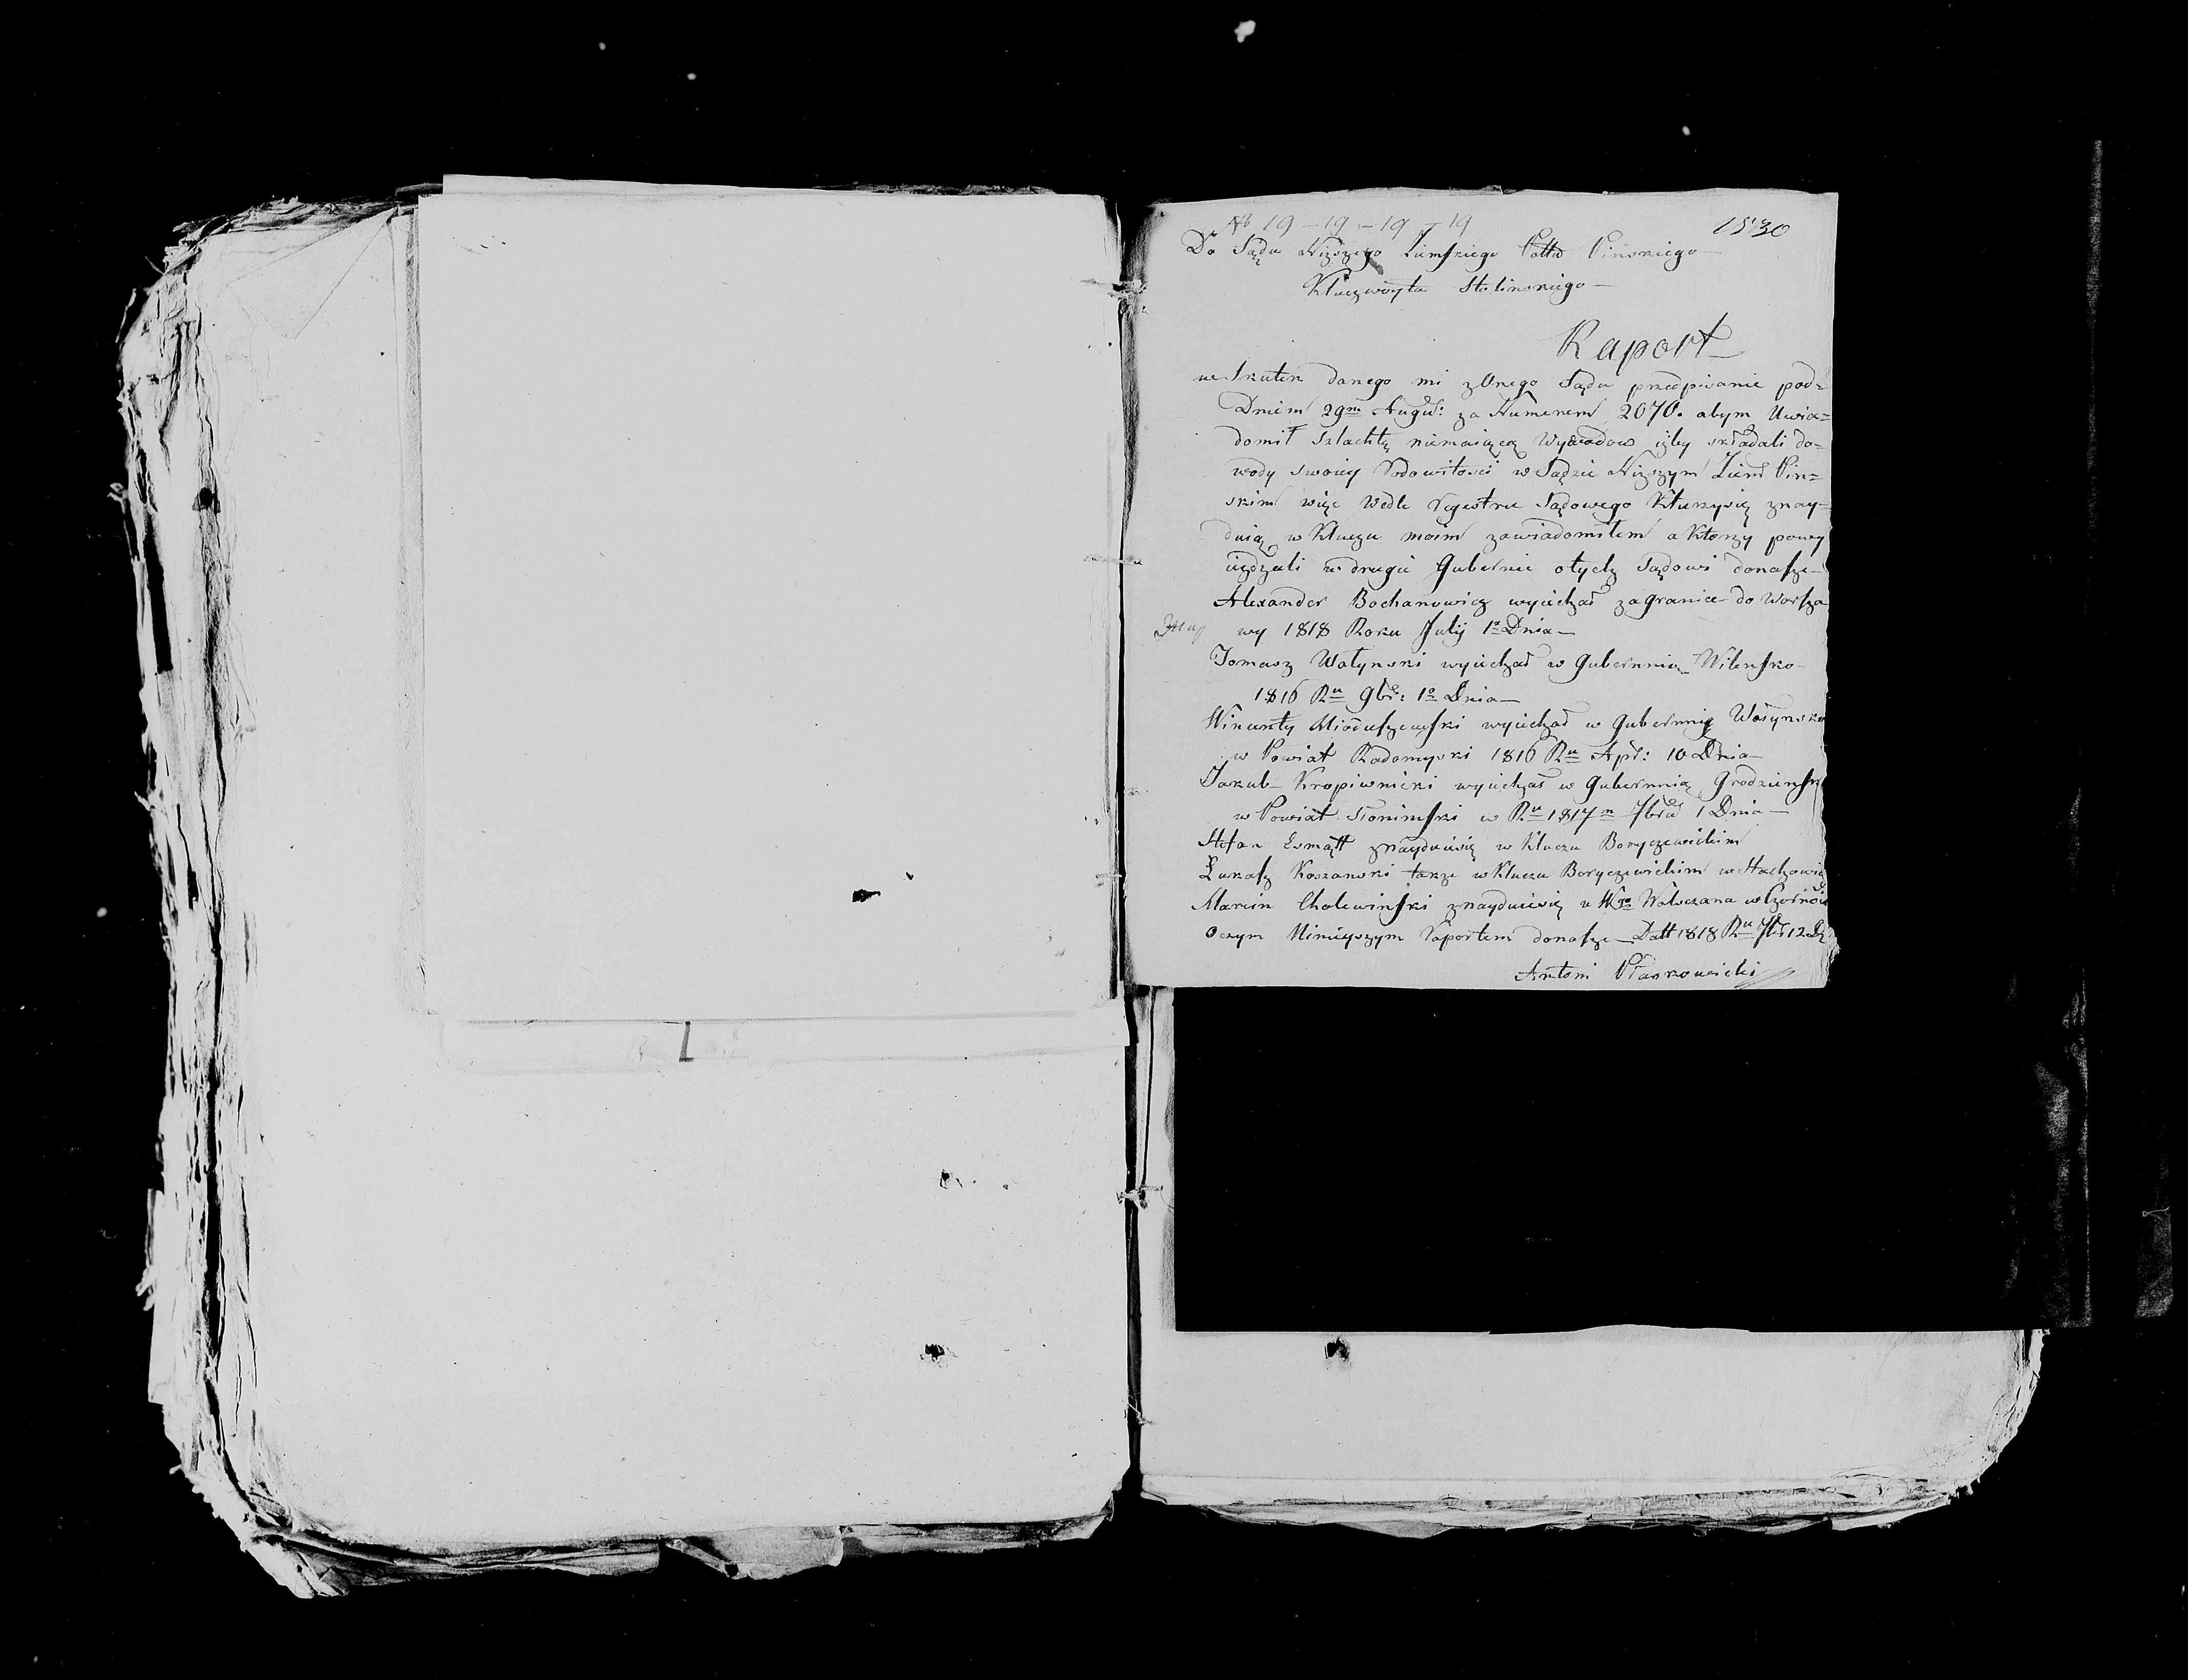 № 19 – 19 – 19 – 19
1530
Do Sądu Niższego Ziemskiego Pottu Pinskiego
Kluczwoyta Stolinskiego
Raport
we Skutek danego mi z Onego Sądu przedpisanie pod=
Dniem 29m Augu: za Numerem 2070. abym Uwia=
domił Szlachtę niemaiącą Wywodow iżby składali do=
wody swoiey Rodowitosci w Sądzie Niższym Ziem Pin=
skim więc Wedle Regestru Sądowego Kturzysię znay=
duią w Kluczu moim zawiadomiłem a Ktorzy powy
ieżdzali w drugie Gubernie otych Sądowi donasze
Alexander Bochanowicz wyiechał zagranice do Warsza
wy 1818 Roku July 1o Dnia
Tomasz Wołynski wyiechał w Gubernnią Wilensko
1816 Ru 9br: 1o Dnia
Wincenty Mioduszewski wyiechał w Gubernnię Wołynsko
w Powiat Radomyski 1816 Ru Apr: 10 Dnia
Jakub Kropiwnicki wyiechał w Gubernnią Grodziensk
w Powiat Słonimski w Ru 1817m 7bra 1 Dnia
Stefan znayduiesię w Kluczu Boryczewickim
Łukasz Koszanski takze w Kluczu Boryczewickim w Stachowie
Marcin Cholewinski znayduiesię u WJo
Oczym Nimieyszym Raportem donasze Datt 1818 Ru 7br 12 D
Antoni